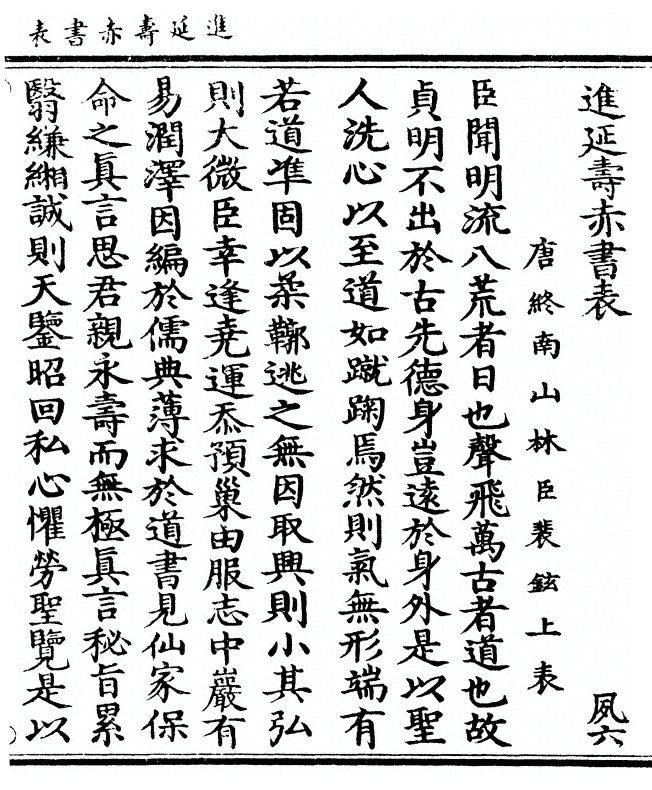 進延壽赤書表
進延壽赤書表
夙六
唐終南山林臣裴鉉上表
臣聞明流八荒者日也聲飛萬古者道也故
貞明不出於古先德身豈遠於身外是以聖
人洗心以至道如蹴踘焉然則氣無形端有
若道凖固以柔鞹逃之無因取興則小其弘
則大微臣幸逢堯運忝預巢由服志中巖有
易潤澤因編於儒典薄求於道書見仙家保
命之眞言思君親永壽而無極眞言秘旨累
翳縑緗誠則天鑒昭回私心懼勞聖覽是以